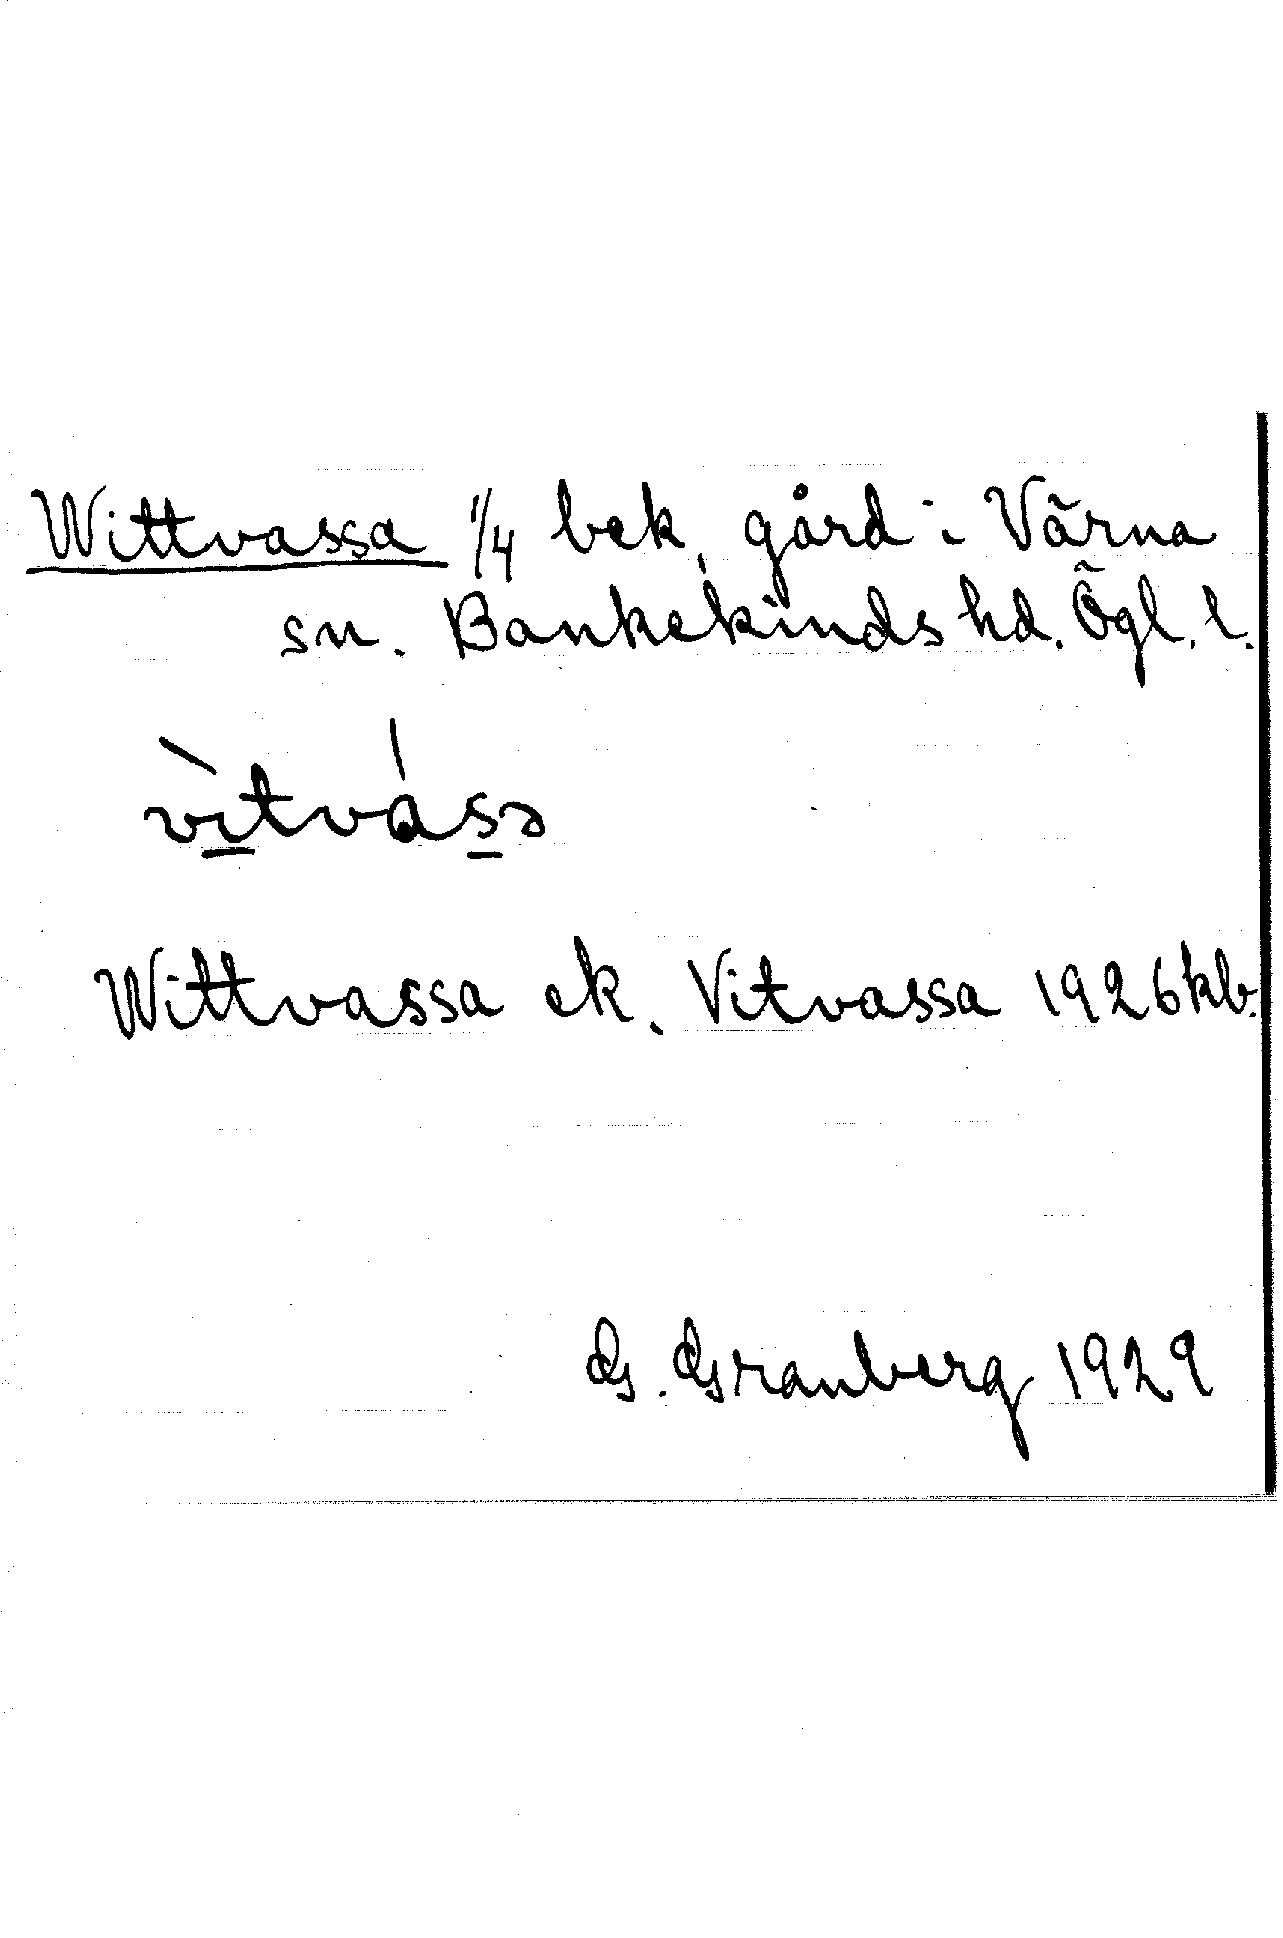 Wittvassa 1/4 bek. gård i Värna
sn. Bankekinds hd. Ögl. l.
vi̱tvás̱ə
Wittvassa ek. Vitvassa 1926 kb.
G. Granberg 1929